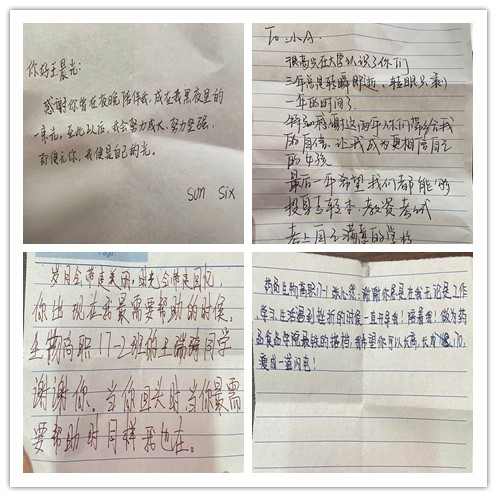 你好王晨光:
感谢你曾在夜晚陪伴我,成在我黑夜里的
一束光。至此以后,我会努力成大,努力坚强,
即便无你,我便是自己的光。
sun six
To 小A.
很高兴在大学认识了你们
三年总是转瞬即逝、转眼只剩
一年的时间了
特别感谢这两年你们带给我
的自信、让我成为更相信自己
的女孩
最后一年希望我们都能够
投身专转本、教资考试
考上自己满意的学校
岁月会带走美困,时光会带走回忆,
你出现在我最需要帮助的时候,
生物高职17-2班的王瑞琦同学
谢谢你。当你回头时,当你最需
要帮助时同样我也在。
生物高职17-1 谢谢你总是在我无论是工作
学习、生活遇到挫折的时候一直开导我!陪着我!做为药
品食品学院最铁的搭档,我希望你可以长高,长成
瘦成一道闪电!